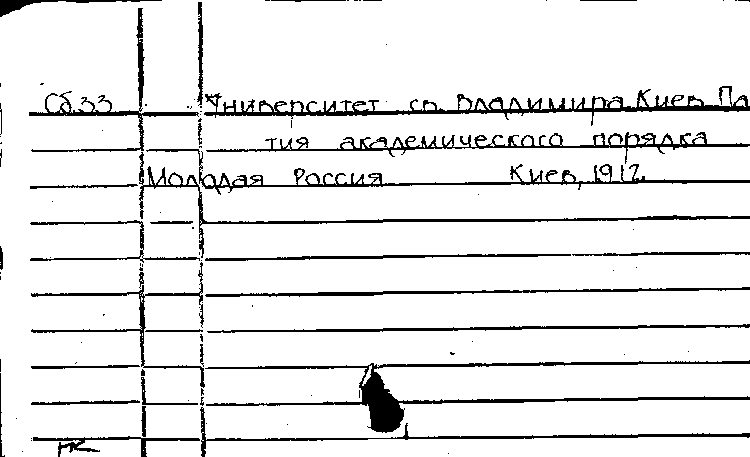 Сб.33 Университет св. Владимира. Киев. Па
тия академического порядка
Молодая Россия Киев, 1912.
нк